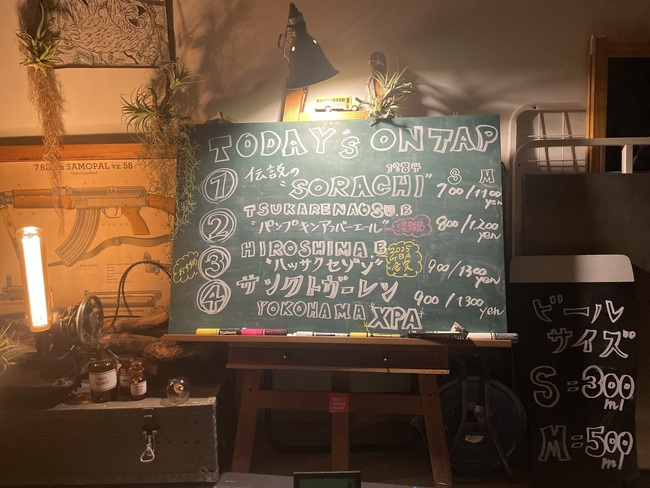 7.62mm SAMOPAL vz. 58
TODAY'S ON TAP
S M
① 伝説の 1984
"SORACHI" 700/1100 yen
② TSUKARENAOSU.B
"パンプキンアッパーエール" 800/1200 yen
おすすめ
③ HIROSHIMA B
"ハッサクセゾン" 900/1300 yen
2025
GBA
金賞
④ サンクトガーレン
YOKOHAMA XPA 900/1300 yen
ビール
サイズ
S=300ml
M=500ml